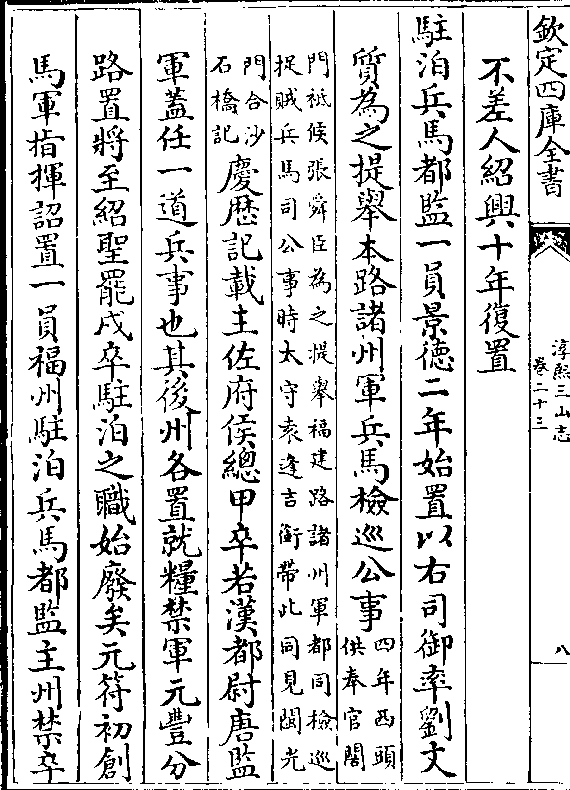 欽定四庫全書
淳熙三山志
卷二十三
八
不差人紹興十年復置
駐泊兵馬都監一員景德二年始置以右司御率劉文
質為之提舉本路諸州軍兵馬檢巡公事
四年西頭
供奉官閤
門祗候張舜臣為之提舉福建路諸州軍都同檢巡
捉賊兵馬司公事時太守袁逢吉銜帶此同見閩光
門合沙
石橋記
慶歴記載主佐府侯總甲卒若漢都尉唐監
軍蓋任一道兵事也其後州各置就糧禁軍元豐分
路置將至紹聖罷戍卒駐泊之職始廢矣元符初創
馬軍指揮詔置一員福州駐泊兵馬都監主州禁卒